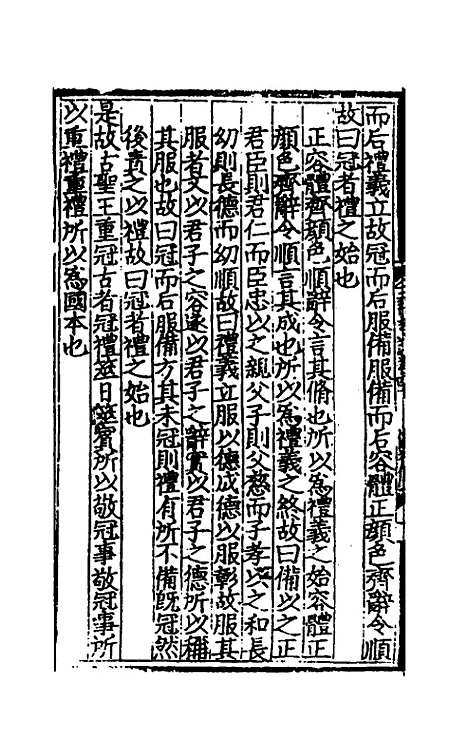 而后禮義立故冠而后服備服備而后容體正顔色齊辭令順
故曰冠者禮之始也
正容體齊顔色順辭令言其脩也所以為禮義之始容體正
顔色齊辭令順言其成也所以為禮義之終故曰備以之正
君臣則君仁而臣忠以之親父子則父慈而子孝以之和長
幼則長德而幼順故曰禮義立服以德成德以服彰故服其
服者文以君子之容遂以君子之辭實以君子之德所以稱
其服也故曰冠而后服備方其未冠則禮有所不備旣冠然
後責之以禮故曰冠者禮之始也
是故古聖王重冠古者冠禮筮日筮賓所以敬冠事敬冠事所
以重禮重禮所以為國本也